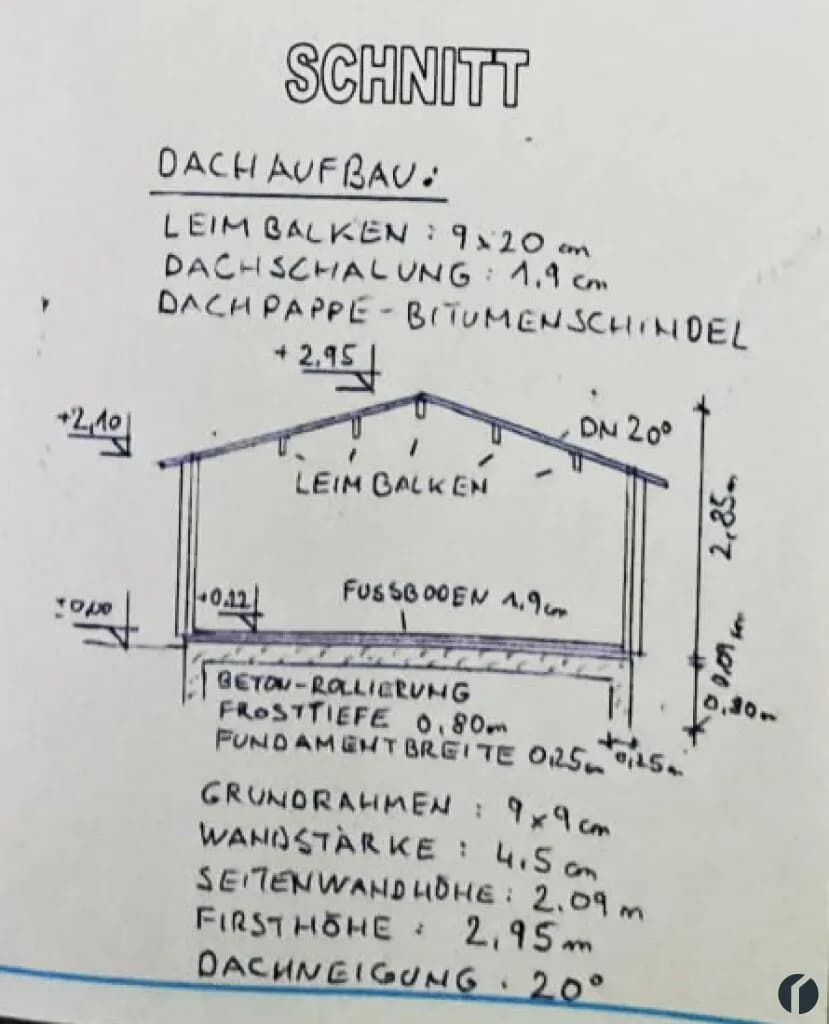 SCHNITT
DACHAUFBAU:
LEIMBALKEN : 9 x 20 cm
DACHSCHALUNG : 1,9 cm
DACHPAPPE - BITUMENSCHINDEL
+ 2,95
+2,10
DN 20°
LEIMBALKEN
2,85m
±0,00
+0,12
FUSSBODEN 1,9cm
0,09m
0,80m
BETON-ROLLIERUNG
FROSTTIEFE 0,80m
FUNDAMENTBREITE 0,25m
0,25m
GRUNDRAHMEN : 9 x 9 cm
WANDSTÄRKE : 4,5 cm
SEITENWANDHÖHE : 2.09 m
FIRSTHÖHE : 2,95 m
DACHNEIGUNG . 20°